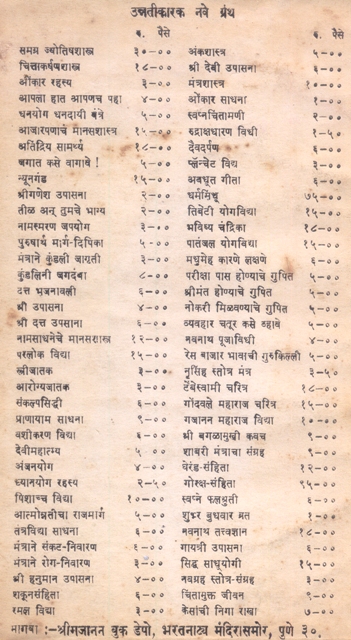 उन्नतीकारक नवे ग्रंथ
रु. पैसे
समग्र ज्योतिषशास्त्र ३०-००
चित्ताकर्षणशास्त्र १८-००
ओंकार रहस्य ३-००
आपला हात आपणच पहा ४-००
धनयोग धनदायी यंत्रे ५-००
आजारपणाचे मानसशास्त्र १५-००
अतिंद्रिय सामर्थ्य १८-००
जगात कसे वागावे ! ५-००
न्यूनगंड १५-००
श्रीगणेश उपासना २-००
तीळ अन् तुमचे भाग्य २-००
नामस्मरण जपयोग ३-००
पुरुषार्थ मार्ग-दिपिका ५-००
मंत्राने कुंडली जागृती ३-००
कुंडलिनी जगदंबा ८-००
दत्त भजनावली ६-००
श्री उपासना ४-००
श्री दत्त उपसाना ६-००
नामसाधनेचे मानसशास्त्र १२-००
परलोक विद्या १५-००
स्त्रीजातक ३-००
आरोग्यजातक ३-००
संकल्पसिद्धी ६-००
प्राणायाम साधना ९-००
वशीकरण विद्या ६-००
देवीमहात्म्य ५-००
अंजनयोग ४-००
ध्यानयोग रहस्य २-५०
पिशाच्च विद्या १०-००
आत्मोन्नतीचा राजमार्ग ५-००
तंत्रविद्या साधना ६-००
मंत्राने संकट-निवारण ६-००
मंत्राने रोग-निवारण ३-००
श्री हनुमान उपासना ४-००
शकूनसंहिता ६-००
रमल विद्या ३-००
रु. पैसे
अंकशास्त्र ५-००
श्री देवी उपासना ६-००
मंत्रशास्त्र १०-००
ओंकार साधना १-००
स्वप्नचिंतामणी २-००
रुद्राक्षधारण विधी १-५०
देवदर्पण ६-००
प्लँचेट विद्य ३-००
अवधूत गीता ६-००
धर्मसिंधू ७५-००
तिबेटी योगविद्या १५-००
भविष्य चंद्रिका १८-००
पातंजल योगविद्या १५-००
मधुमेह कारणे लक्षणे ६-००
परीक्षा पास होण्याचे गुपित ५-००
श्रीमंत होण्याचे गुपित ५-००
नोकरी मिळवण्याचे गुपित ५-००
व्यवहार चतूर कसे व्हावे ५-००
नवनाथ पूजाविधी ४-००
रेस बाजार भावाची गुरुकिल्ली ५-००
नृसिंह स्तोत्र मंत्र ३-५०
टेंबेस्वामी चरित्र १८-००
गोंदवले महाराज चरित्र १५-००
गजानन महाराज विद्या १०-००
श्री बगळामुखी कवच ९-००
शाबरी मंत्राचा संग्रह ९-००
घेरंड-संहिता १२-००
गोरक्ष-संहिता ९५-००
स्वप्न फलश्रुती ६-००
शुक्रवार बुधवार व्रत १-००
नवनाथ तत्त्वज्ञान १८-००
गायत्री उपासना ६-००
सिद्ध साधूयोगी १५-००
नवग्रह स्तोत्र-संग्रह ३-००
चिंतामुक्त जीवन ९-००
केसांची निगा राखा ७-००
मागवा :-श्रीगजानन बुक डेपो, भरतनाट्य मंदिरासमोर, पुणे ३०.